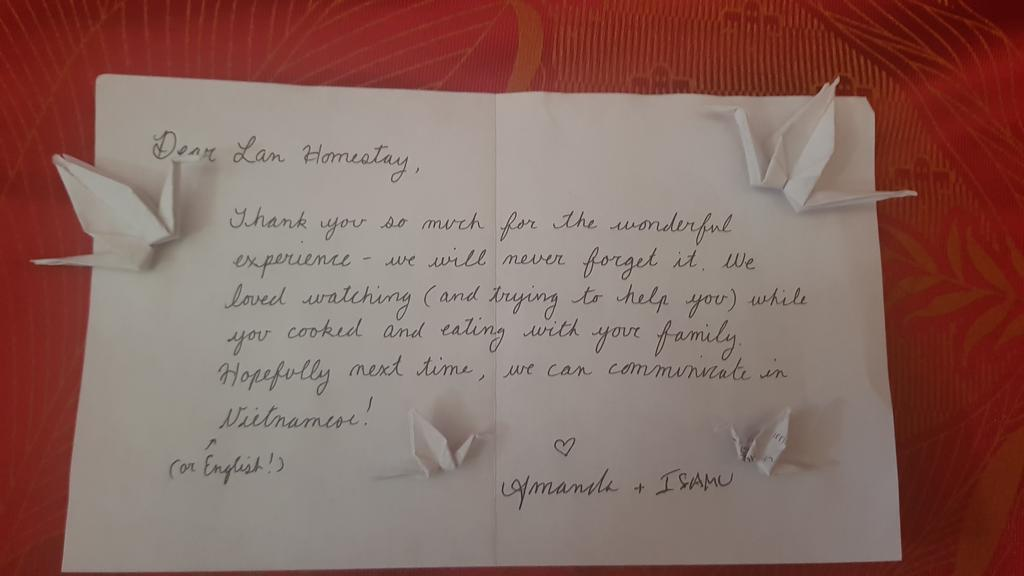 Dear Lan Homestay,
Thank you so much for the wonderful
experience - we will never forget it. We
loved watching (and trying to help you) while
you cooked and eating with your family.
Hopefully next time, we can communicate in
Vietnamese!
(or English!)
♡
Amanda + ISAMU